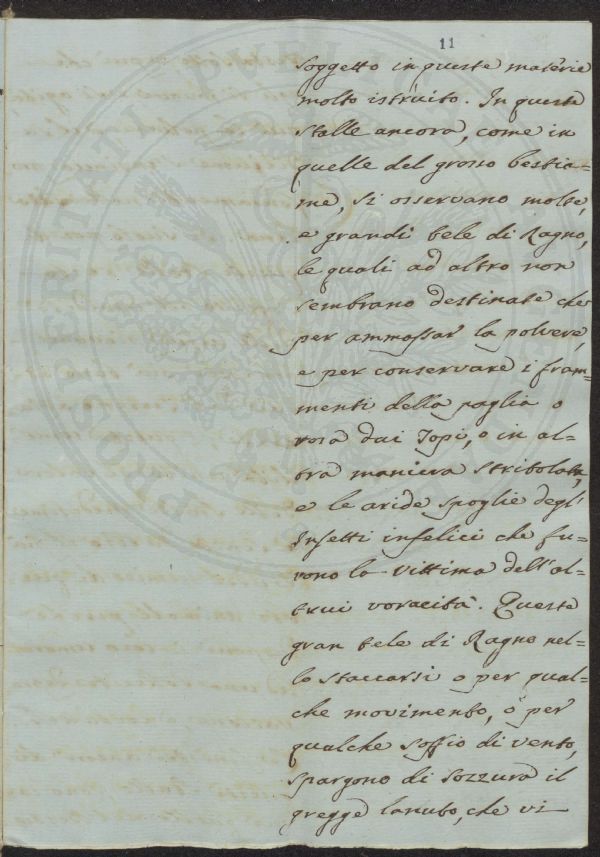 11
soggetto in queste materie
molto istruito. In queste
stalle ancora, come in
quelle del grosso bestia=
me, si osservano molte,
e grandi tele di Ragno,
le quali ad altro non
sembrano destinate che
per ammassar la polvere,
e per conservare i fram=
menti della paglia o
rosa dai Topi, o in al=
tra maniera stritolata,
e le aride spoglie degl'
Insetti infelici che fu=
rono la vittima dell'al=
trui voracità. Queste
gran tele di Ragno nel=
lo staccarsi o per qual=
che movimento, o per
qualche soffio di vento,
spargono di sozzura il
gregge lanuto, che vi
PROSPERITATI PUBLICAE